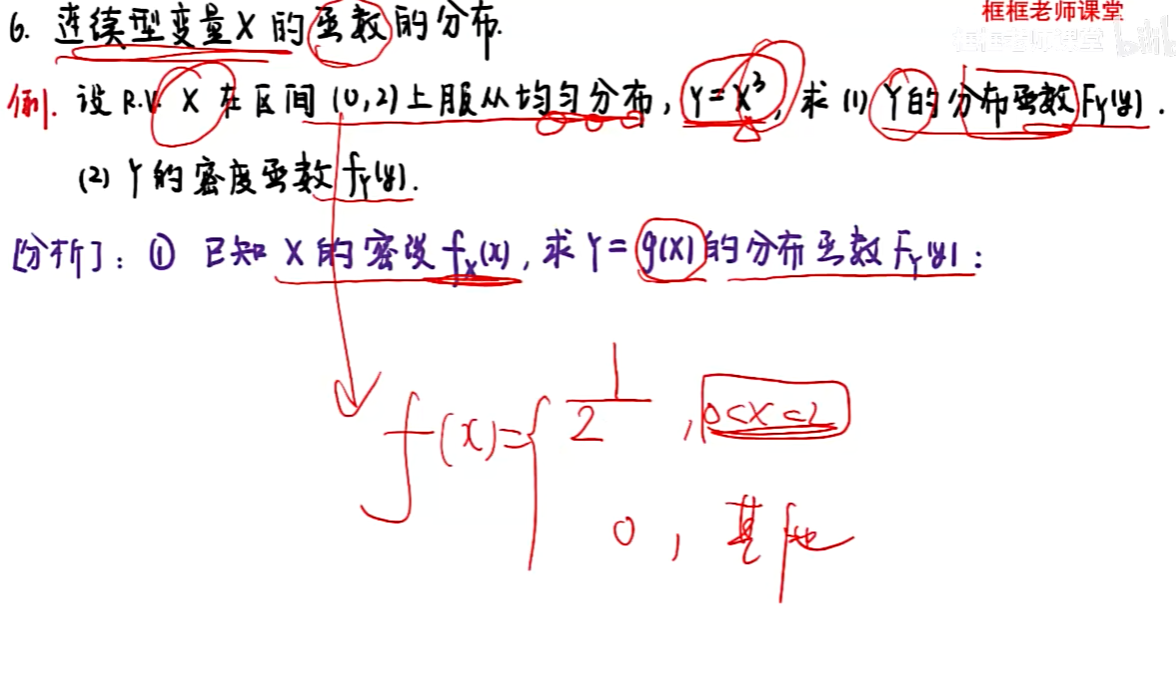 框框老师课堂
框框老师课堂 bilibili
6. 连续型变量X的函数的分布.
例. 设 R.V. X 在区间 (0,2)上服从均匀分布, Y=X³, 求 (1) Y的分布函数 F_Y(y).
(2) Y的密度函数 f_Y(y).
[分析]: ① 已知 X 的密度 f_X(x), 求 Y = g(X) 的分布函数 F_Y(y):
f(x)={ 1/2 , 0<x<2
0 , 其他